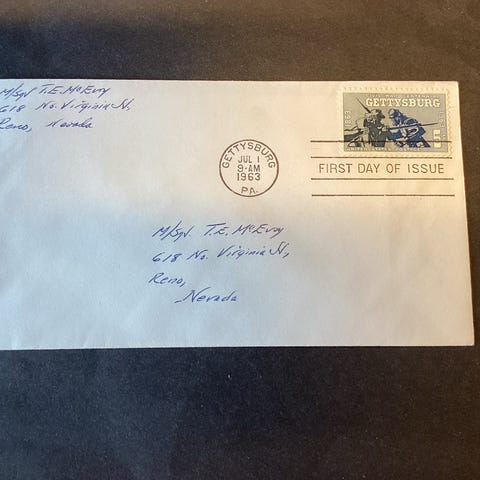 M/Sgt. T.E. McEvoy
618 No. Virginia St,
Reno, Nevada
CIVIL WAR CENTENNIAL
GETTYSBURG
1863
1963
5¢
UNITED STATES POSTAGE
GETTYSBURG
JUL 1
9-AM
1963
PA.
FIRST DAY OF ISSUE
M/Sgt. T.E. McEvoy
618 No. Virginia St,
Reno,
Nevada